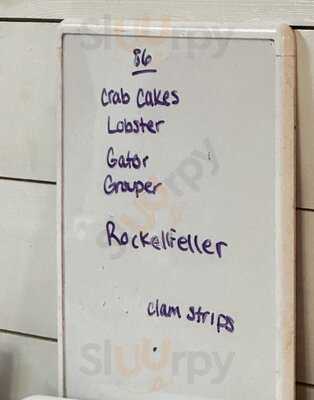 86
Crab Cakes
Lobster
Gator
Grouper
Rockelfeller
clam strips
Slurrpy
Slurrpy
Slurrpy
Slurrpy
Slurrpy